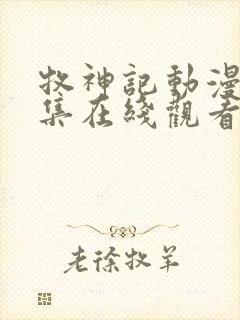 牧神記動漫
集在綫觀看
老徐牧羊